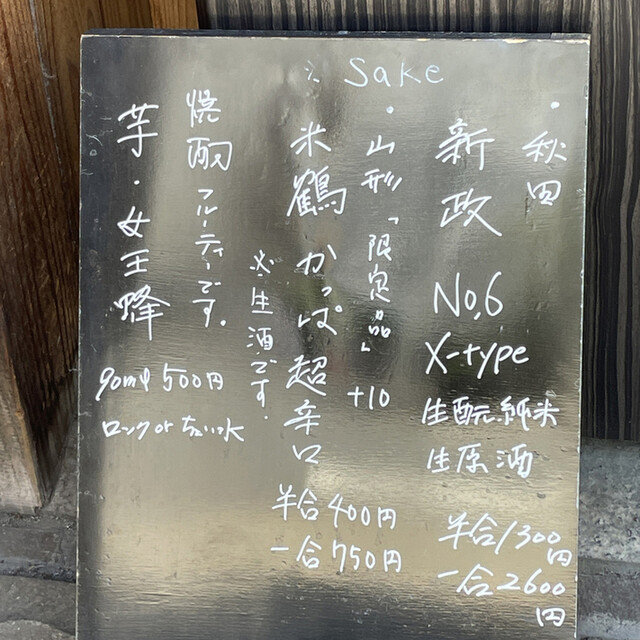 ※ Sake
・秋田
新政
No.6
X-type
生酛純米
生原酒
半合1300円
一合2600円
・山形「限定品」+10
米鶴 かっぱ 超辛口
※生酒です。
半合400円
一合750円
焼酎 フルーティーです。
芋・女王蜂
90ml 500円
ロック or ちょい水